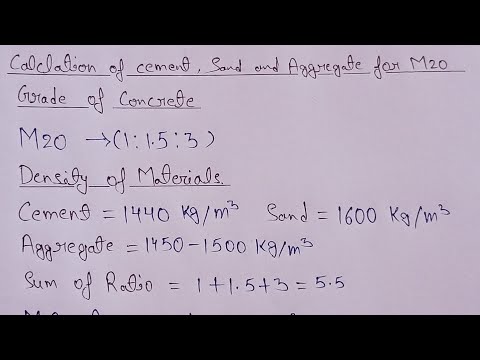 Calclation of cement, Sand and Aggregate for M20
Grade of Concrete
M20 → (1:1.5:3)
Density of Materials.
Cement = 1440 Kg/m³ Sand = 1600 Kg/m³
Aggregate = 1450-1500 Kg/m³
Sum of Ratio = 1+1.5+3 = 5.5